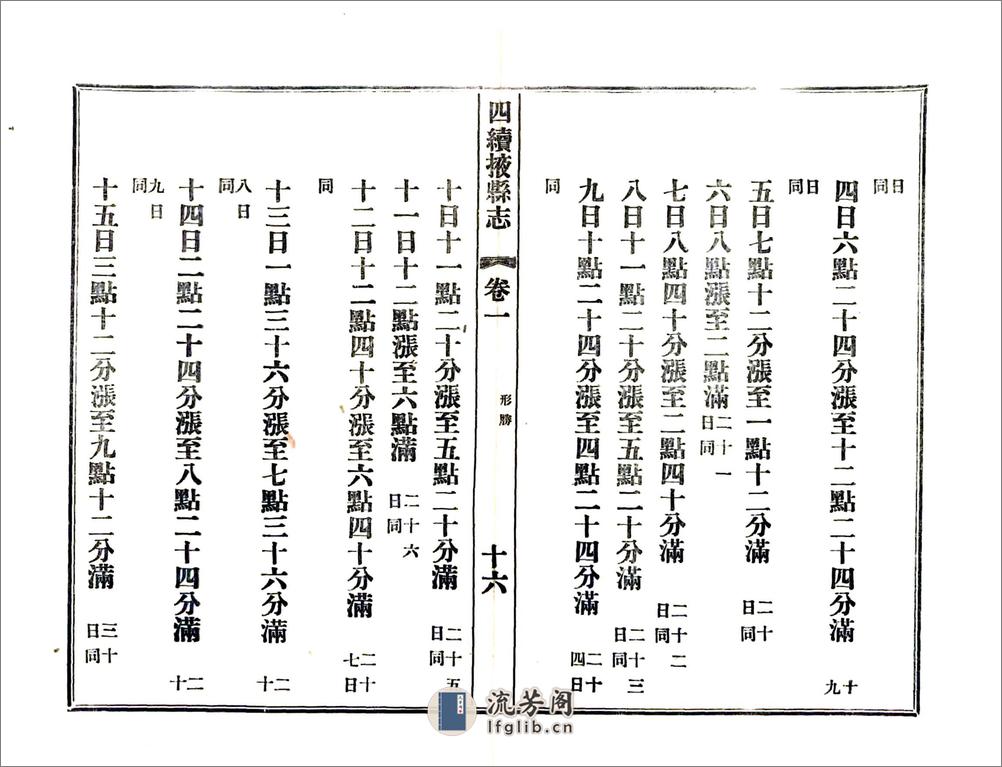 日同
四日六點二十四分漲至十二點二十四分滿 十九
日同
五日七點十二分漲至一點十二分滿 二十日同
六日八點漲至二點滿 二十一日同
七日八點四十分漲至二點四十分滿 二十二日同
八日十一點二十分漲至五點二十分滿 二十三日同
九日十點二十四分漲至四點二十四分滿 二十四日
同
四續掖縣志 卷一 形勝 十六
十日十一點二十分漲至五點二十分滿 二十五日同
十一日十二點漲至六點滿 二十六日同
十二日十二點四十分漲至六點四十分滿 二十七日
同
十三日一點三十六分漲至七點三十六分滿 二十
八日同
十四日二點二十四分漲至八點二十四分滿 二十
九日同
十五日三點十二分漲至九點十二分滿 三十日同
流芳阁
lfglib.cn